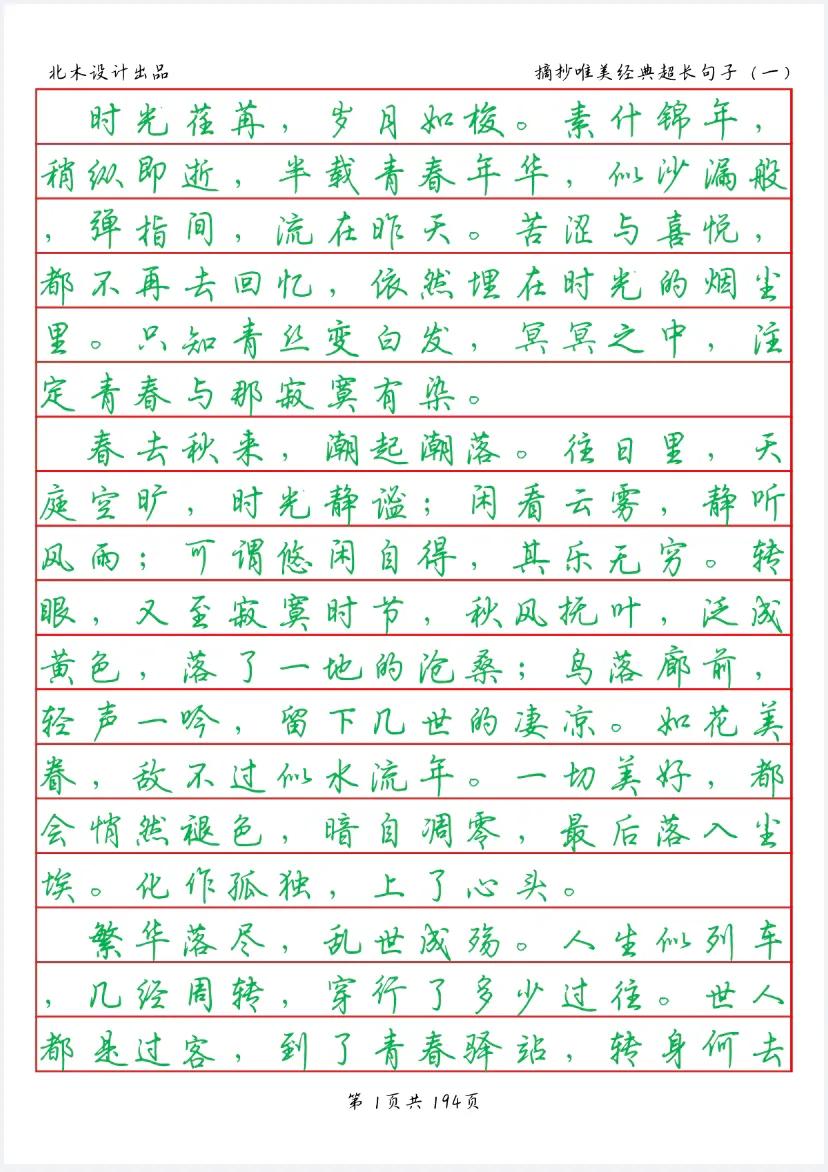 北木设计出品
摘抄唯美经典超长句子（一）
时光荏苒，岁月如梭。素什锦年，
稍纵即逝，半载青春年华，似沙漏般
，弹指间，流在昨天。苦涩与喜悦，
都不再去回忆，依然埋在时光的烟尘
里。只知青丝变白发，冥冥之中，注
定青春与那寂寞有染。
春去秋来，潮起潮落。往日里，天
庭空旷，时光静谧；闲看云雾，静听
风雨；可谓悠闲自得，其乐无穷。转
眼，又至寂寞时节，秋风抚叶，泛成
黄色，落了一地的沧桑；鸟落廊前，
轻声一吟，留下几世的凄凉。如花美
眷，敌不过似水流年。一切美好，都
会悄然褪色，暗自凋零，最后落入尘
埃。化作孤独，上了心头。
繁华落尽，乱世成殇。人生似列车
，几经周转，穿行了多少过往。世人
都是过客，到了青春驿站，转身何去
第 1页共 194页